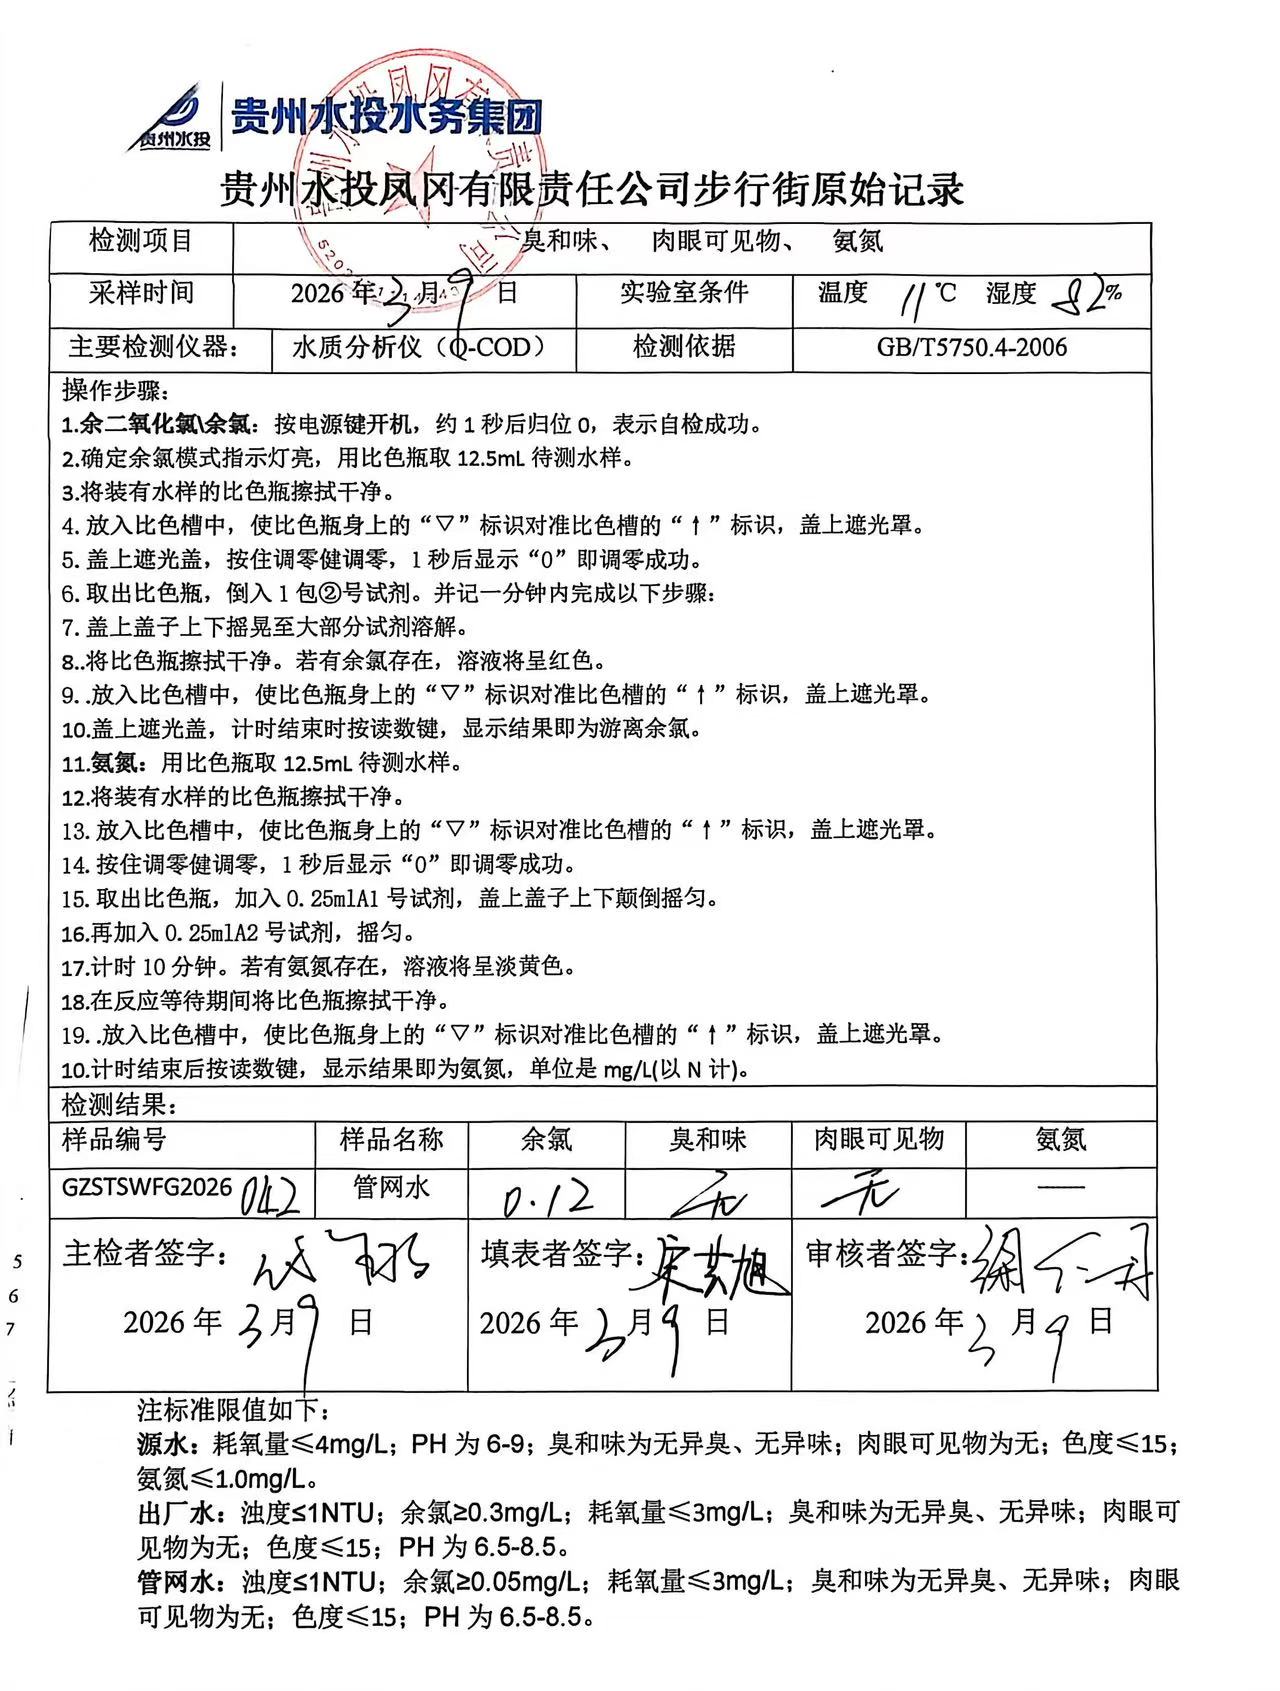 贵州水投
贵州水投水务集团
贵州水投凤冈有限责任公司步行街原始记录
检测项目 臭和味、 肉眼可见物、 氨氮
采样时间 2026年3月9日 实验室条件 温度 11℃ 湿度 82%
主要检测仪器： 水质分析仪（Q-COD） 检测依据 GB/T5750.4-2006
操作步骤：
1.余二氧化氯\余氯：按电源键开机，约1秒后归位0，表示自检成功。
2.确定余氯模式指示灯亮，用比色瓶取12.5mL待测水样。
3.将装有水样的比色瓶擦拭干净。
4. 放入比色槽中，使比色瓶身上的“▽”标识对准比色槽的“↑”标识，盖上遮光罩。
5. 盖上遮光盖，按住调零健调零，1秒后显示“0”即调零成功。
6. 取出比色瓶，倒入1包②号试剂。并记一分钟内完成以下步骤：
7. 盖上盖子上下摇晃至大部分试剂溶解。
8..将比色瓶擦拭干净。若有余氯存在，溶液将呈红色。
9. .放入比色槽中，使比色瓶身上的“▽”标识对准比色槽的“↑”标识，盖上遮光罩。
10.盖上遮光盖，计时结束时按读数键，显示结果即为游离余氯。
11.氨氮：用比色瓶取12.5mL待测水样。
12.将装有水样的比色瓶擦拭干净。
13. 放入比色槽中，使比色瓶身上的“▽”标识对准比色槽的“↑”标识，盖上遮光罩。
14. 按住调零健调零，1秒后显示“0”即调零成功。
15. 取出比色瓶，加入0.25mlA1号试剂，盖上盖子上下颠倒摇匀。
16.再加入0.25mlA2号试剂，摇匀。
17.计时10分钟。若有氨氮存在，溶液将呈淡黄色。
18.在反应等待期间将比色瓶擦拭干净。
19. .放入比色槽中，使比色瓶身上的“▽”标识对准比色槽的“↑”标识，盖上遮光罩。
10.计时结束后按读数键，显示结果即为氨氮，单位是mg/L(以N计)。
检测结果：
样品编号 样品名称 余氯 臭和味 肉眼可见物 氨氮
GZSTSWFG2026042 管网水 0.12 无 无 —
主检者签字： 填表者签字： 审核者签字：
2026年3月9日 2026年3月9日 2026年3月9日
注标准限值如下：
源水：耗氧量≤4mg/L；PH为6-9；臭和味为无异臭、无异味；肉眼可见物为无；色度≤15；
氨氮≤1.0mg/L。
出厂水：浊度≤1NTU；余氯≥0.3mg/L；耗氧量≤3mg/L；臭和味为无异臭、无异味；肉眼可
见物为无；色度≤15；PH为6.5-8.5。
管网水：浊度≤1NTU；余氯≥0.05mg/L；耗氧量≤3mg/L；臭和味为无异臭、无异味；肉眼
可见物为无；色度≤15；PH为6.5-8.5。
5
6
7